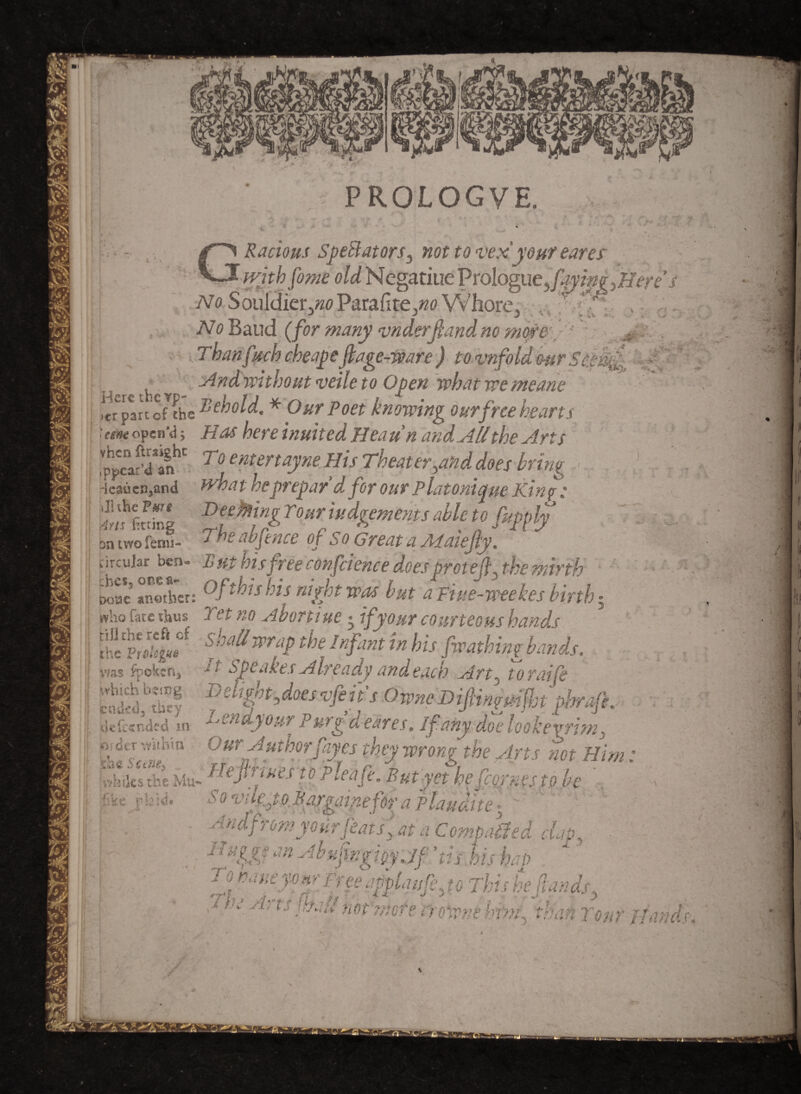 PROLOGVE.
GRacious Spectators, not to vex your eares
With some old Negatiue Prologue, saying, Here's
No Souldier, no Parasite, no Whore,
No Baud (for many vnderstand no more
Than such cheape stage-ware) to vnfold our Scene,
And without veile to Open what we meane
Behold. * Our Poet knowing our free hearts
Has here inuited Heau'n and All the Arts
To entertayne His Theater, and does bring
What he prepar'd for our Platonique King:
Deeming Your iudgements able to supply
The absence of So Great a Maiesty.
But his free conscience does protest, the mirth
Of this his night was but a Fiue-weekes birth;
Yet no Abortiue; if your courteous hands
Shall wrap the Infant in his swathing bands.
It Speakes Already and each Art, to raise
Delight, does vse it's Owne Distinguisht phrase.
Lend your Purg'd eares. If any doe looke grim,
Our Author sayes they wrong the Arts not Him:
He striues to Please. But yet he scornes to be
So vile, to Bargaine for a Plaudite;
And from your seats, at a Compacted clap,
Hugge an Abusing ioy. If 'tis his hap
To haue your Free applause, to This he stands,
The Arts shall not more crowne him, than Your Hands.
Here the vp-
per part of the
Scene open'd;
when straight
appear'd an
Heauen, and
all the Pure
Arts sitting
on two semi-
circular ben-
ches, one a-
boue another:
who sate thus
till the rest of
the Prologue
was spoken,
which being
ended, they
descended in
order within
the Scene,
whiles the Mu-
sike plaid.